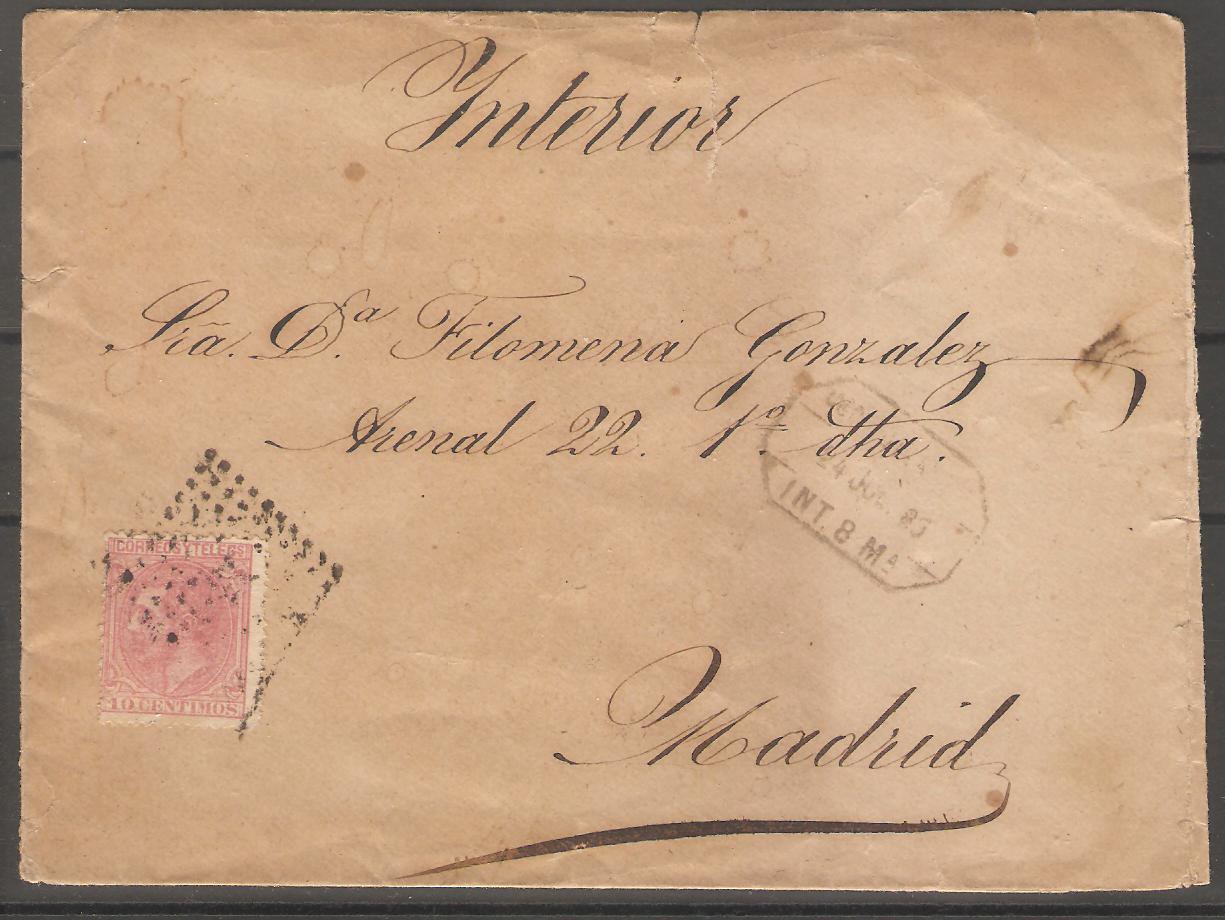 Interior
Sra. D.ª Filomena Gonzalez
Arenal 22. 1º dha.
24 JUL. 85
INT. 8 Mª
CORREOS Y TELEGS
10 CENTIMOS
Madrid